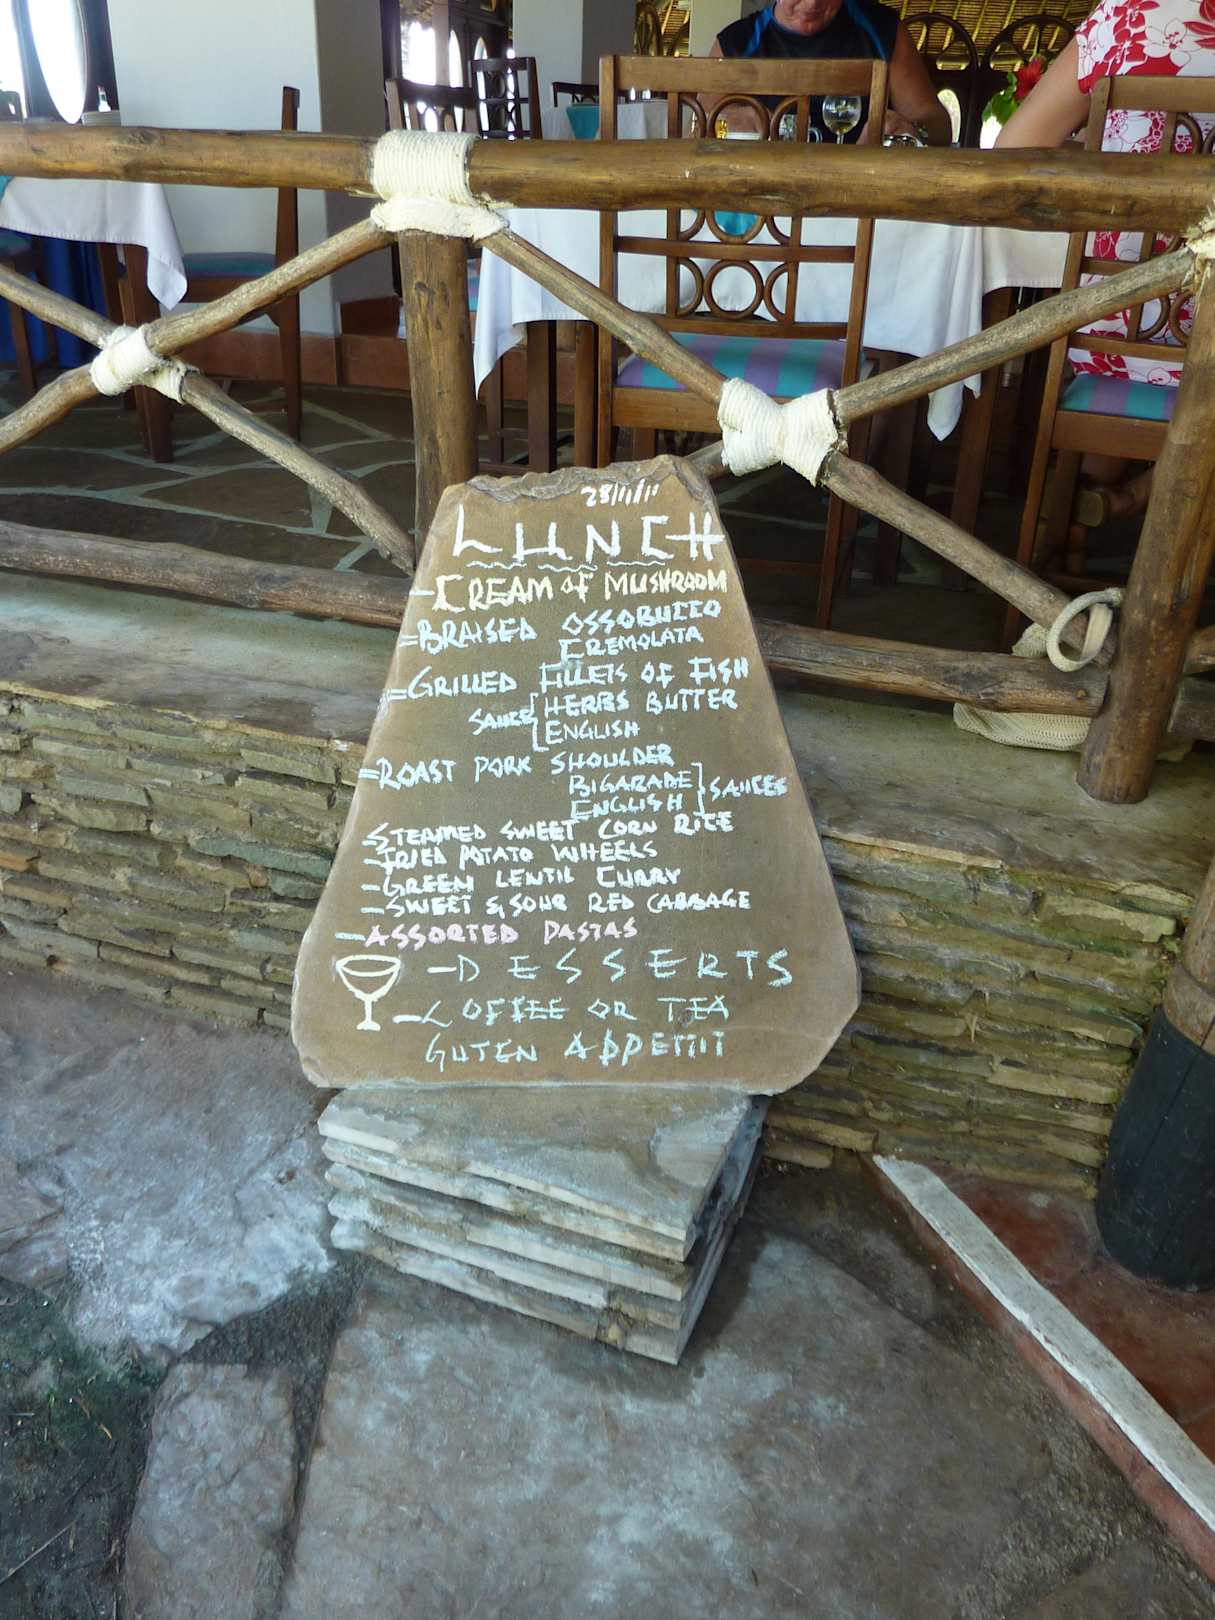 28/11/11
LUNCH
-CREAM OF MUSHROOM
=BRAISED OSSOBUCCO
CREMOLATA
=GRILLED FILLETS OF FISH
SAUCE { HERBS BUTTER
ENGLISH
=ROAST PORK SHOULDER
BIGARADE } SAUCES
ENGLISH
-STEAMED SWEET CORN RICE
-FRIED POTATO WHEELS
-GREEN LENTIL CURRY
-SWEET & SOUR RED CABBAGE
-ASSORTED PASTAS
-DESSERTS
-COFFEE OR TEA
GUTEN APPETIT